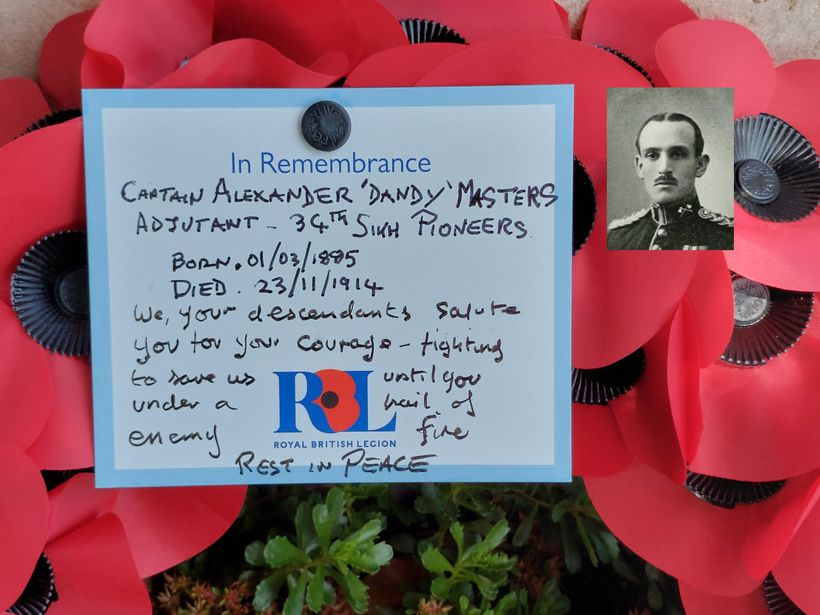 In Remembrance
CAPTAIN ALEXANDER 'DANDY' MASTERS
ADJUTANT - 34TH SIKH PIONEERS.
BORN. 01/03/1885
DIED. 23/11/1914
We, your descendants salute
you for your courage - fighting
to save us until you
under a hail of
enemy fire
RBL
ROYAL BRITISH LEGION
REST IN PEACE